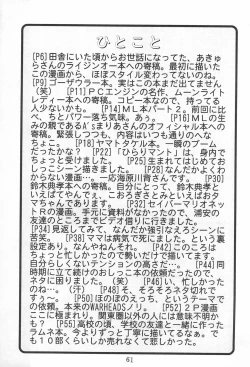 ひとこと
[P6]田舎にいた頃からお世話になってた、あきゅ
らさんのライジンオー本への寄稿。最初に描いた
この漫画から、ほぼスタイル変わってないのね。
[P9]ゴーザウラー本。実はこの本まだ出てませ
ん(笑) [P11]PCエンジンの名作、ムーンライト
レディー本への寄稿。コピー本なので、持ってる
人少ないかも。[P14]ML本パート2。前回に比
べ、ちとパワー落ち気味。あぅ。[P16]MLの生
みの親である
さんのオフィシャル本への
寄稿。緊張しつつも、内容はいつも通りのへな
ちょこ。[P18]ヤマトタケル本。一瞬のブーム
だったかな？[P22]「ひらりマント」は、身内で
ちょっと受けました。[P25]生まれてはじめてお
しっこシーン描きました。[P28]なんだかよくわ
からない漫画…。すべては海原川背さんです。[P30]
鈴木典孝本への寄稿。自分にとって、鈴木典孝と
いえばおキャちゃんで、こおろぎさとみといえばおタ
マちゃんであります。[P32]セイバーマリオネッ
トRの漫画。手元に資料がなかったので、浦安の
友達のところまでビデオ借りに行きました。
[P34]見返してみて、なんだか強引なえろシーンに
苦笑。[P38]ママは病気で死にました。という裏
設定あり。なんやねんそれ。[P42]このころは
ちょっと忙しかったので勢いだけで描いてます。
自分らしくないテンションの高さだ…。[P44]同
時期に立て続けのおしっこ本の依頼だったので、ネ
タに限りが…。(笑) [P46]いや、忙しかった
のねー…。(汗) [P48]そ、そろそろネタ切れで
すぅ～。[P50]ほのぼのえっち、というテーマで
の依頼。本来のWARHEADSノリ。[P52]2P漫画
ここに極まれり。関東圏以外の人には意味不明か
も？[P55]高校の頃、学校の友達と一緒に作った
ラムネ本。今よりずっと丁寧に描いてるなぁ。で
も10部くらいしか売れなくて悲しかった。
61